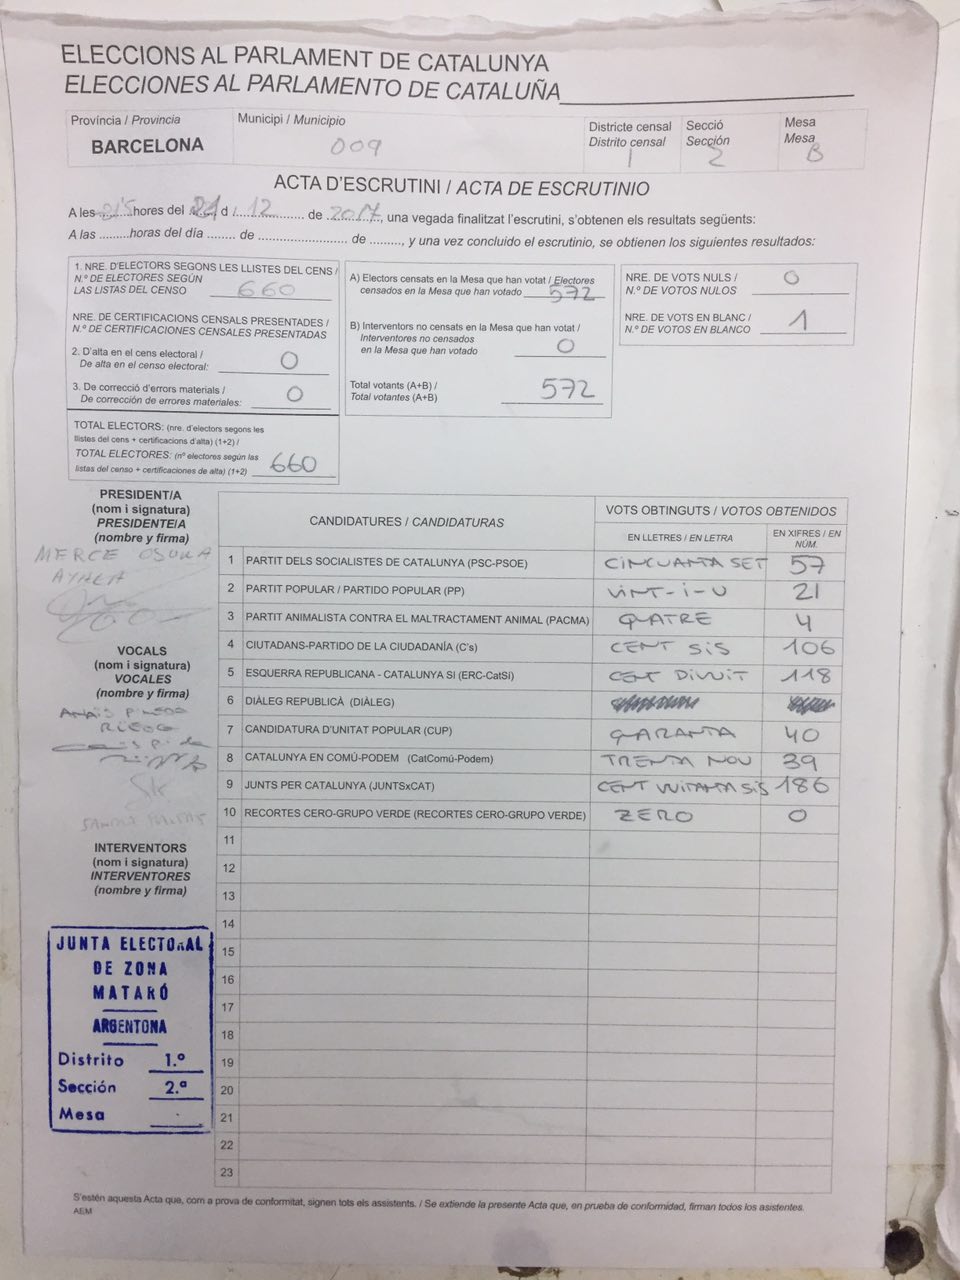 ELECCIONS AL PARLAMENT DE CATALUNYA
ELECCIONES AL PARLAMENTO DE CATALUÑA
Província / Provincia
BARCELONA
Municipi / Municipio
009
Districte censal
Distrito censal
1
Secció
Sección
2
Mesa
Mesa
B
ACTA D'ESCRUTINI / ACTA DE ESCRUTINIO
A les ........ hores del 21 d / 12 de 2017, una vegada finalitzat l'escrutini, s'obtenen els resultats següents:
A las .........horas del día ........ de ........................ de ........., y una vez concluido el escrutinio, se obtienen los siguientes resultados:
1. NRE. D'ELECTORS SEGONS LES LLISTES DEL CENS /
N.º DE ELECTORES SEGÚN
LAS LISTAS DEL CENSO 660
NRE. DE CERTIFICACIONS CENSALS PRESENTADES /
N.º DE CERTIFICACIONES CENSALES PRESENTADAS
2. D'alta en el cens electoral /
De alta en el censo electoral: 0
3. De correcció d'errors materials /
De corrección de errores materiales: 0
TOTAL ELECTORS: (nre. d'electors segons les
llistes del cens + certificacions d'alta) (1+2) /
TOTAL ELECTORES: (nº electores según las
listas del censo + certificaciones de alta) (1+2) 660
A) Electors censats en la Mesa que han votat / Electores
censados en la Mesa que han votado 572
B) Interventors no censats en la Mesa que han votat /
Interventores no censados
en la Mesa que han votado 0
Total votants (A+B) /
Total votantes (A+B) 572
NRE. DE VOTS NULS /
N.º DE VOTOS NULOS 0
NRE. DE VOTS EN BLANC /
N.º DE VOTOS EN BLANCO 1
PRESIDENT/A
(nom i signatura)
PRESIDENTE/A
(nombre y firma)
MERCE OSUNA
AYALA
VOCALS
(nom i signatura)
VOCALES
(nombre y firma)
INTERVENTORS
(nom i signatura)
INTERVENTORES
(nombre y firma)
CANDIDATURES / CANDIDATURAS
VOTS OBTINGUTS / VOTOS OBTENIDOS
EN LLETRES / EN LETRA
EN XIFRES / EN NÚM.
1 PARTIT DELS SOCIALISTES DE CATALUNYA (PSC-PSOE) CINCUANTA SET 57
2 PARTIT POPULAR / PARTIDO POPULAR (PP) VINT-I-U 21
3 PARTIT ANIMALISTA CONTRA EL MALTRACTAMENT ANIMAL (PACMA) QUATRE 4
4 CIUTADANS-PARTIDO DE LA CIUDADANÍA (C's) CENT SIS 106
5 ESQUERRA REPUBLICANA - CATALUNYA SI (ERC-CatSí) CENT DIVUIT 118
6 DIÀLEG REPUBLICÀ (DIÀLEG)
7 CANDIDATURA D'UNITAT POPULAR (CUP) QARANTA 40
8 CATALUNYA EN COMÚ-PODEM (CatComú-Podem) TRENTA NOU 39
9 JUNTS PER CATALUNYA (JUNTSxCAT) CENT VUITANTA SIS 186
10 RECORTES CERO-GRUPO VERDE (RECORTES CERO-GRUPO VERDE) ZERO 0
11
12
13
14
15
16
17
18
19
20
21
22
23
JUNTA ELECTORAL
DE ZONA
MATARÓ
ARGENTONA
Distrito 1.º
Sección 2.ª
Mesa
S'estén aquesta Acta que, com a prova de conformitat, signen tots els assistents. / Se extiende la presente Acta que, en prueba de conformidad, firman todos los asistentes.
AEM